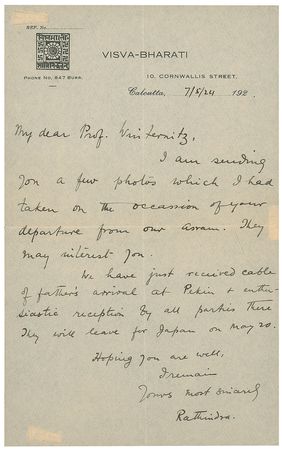 REF. No.
VISVA-BHARATI
PHONE NO, 647 BURR.
10, CORNWALLIS STREET.
Calcutta, 7/5/24 192
My dear Prof. Winternitz,
I am sending
you a few photos which I had
taken on the occassion of your
departure from our asram. They
may interest you.
We have just received cable
of father's arrival at Pekin & enthu-
siastic reception by all parties there
They will leave for Japan on May 20.
Hoping you are well,
I remain
Yours most sincerely
Rathindra.